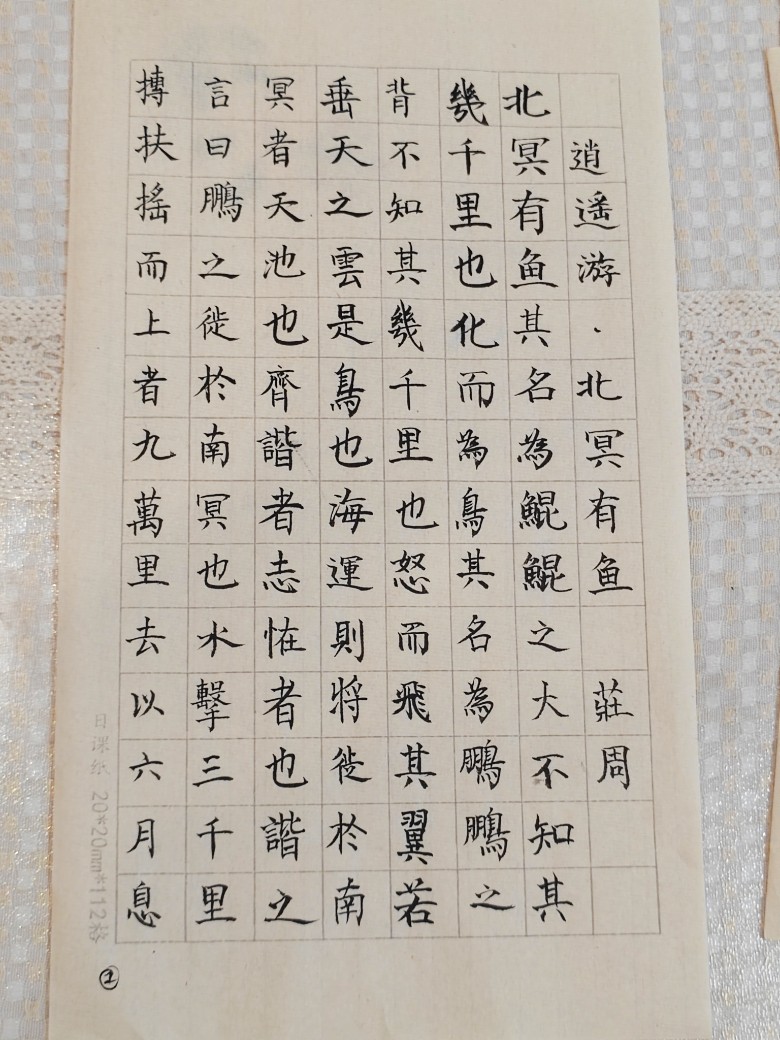 逍遥游·北冥有鱼 莊周
北冥有鱼其名為鯤鯤之大不知其
幾千里也化而為鳥其名為鵬鵬之
背不知其幾千里也怒而飛其翼若
垂天之雲是鳥也海運則将徙於南
冥者天池也齊諧者志恠者也諧之
言曰鵬之徙於南冥也水擊三千里
摶扶摇而上者九萬里去以六月息
日课纸 20*20mm*112格
①